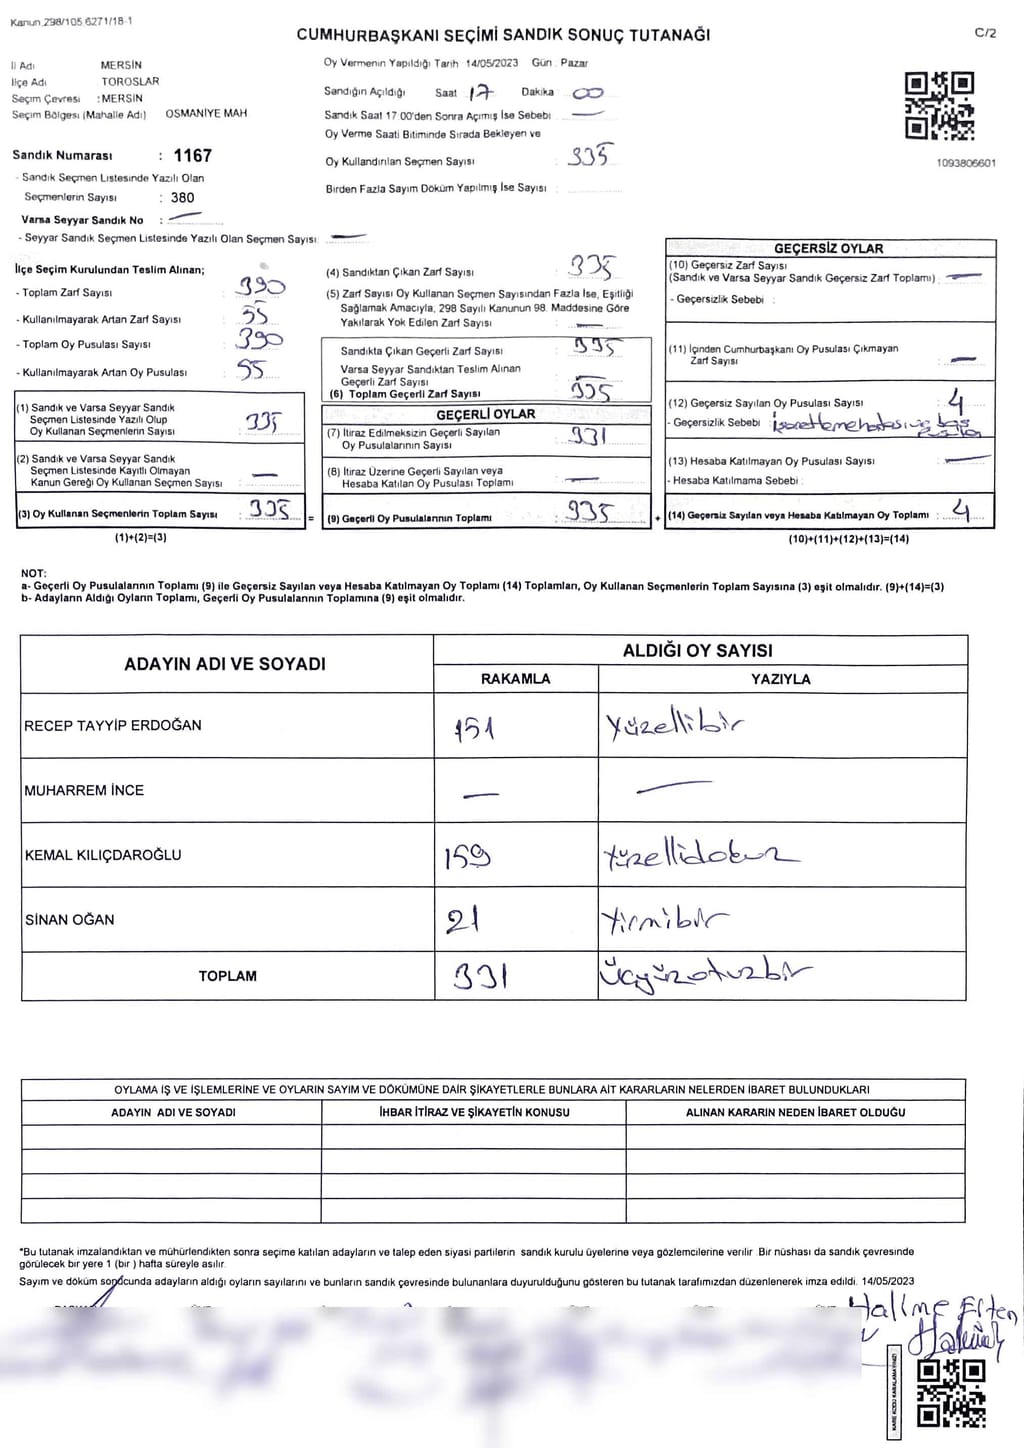 Kanun.298/105 6271/18-1
CUMHURBAŞKANI SEÇİMİ SANDIK SONUÇ TUTANAĞI
C/2
İl Adı MERSİN
İlçe Adı TOROSLAR
Seçim Çevresi : MERSİN
Seçim Bölgesi (Mahalle Adı) OSMANİYE MAH
Oy Vermenin Yapıldığı Tarih 14/05/2023 Gün : Pazar
Sandığın Açıldığı Saat 17 Dakika 00
Sandık Saat 17 00'den Sonra Açımış İse Sebebi —
Oy Verme Saati Bitiminde Sırada Bekleyen ve
Oy Kullandırılan Seçmen Sayısı : 335
Birden Fazla Sayım Döküm Yapılmış İse Sayısı :
1093806601
Sandık Numarası : 1167
- Sandık Seçmen Listesinde Yazılı Olan
Seçmenlerin Sayısı : 380
Varsa Seyyar Sandık No : —
- Seyyar Sandık Seçmen Listesinde Yazılı Olan Seçmen Sayısı: —
İlçe Seçim Kurulundan Teslim Alınan;
- Toplam Zarf Sayısı : 390
- Kullanılmayarak Artan Zarf Sayısı : 55
- Toplam Oy Pusulası Sayısı : 390
- Kullanılmayarak Artan Oy Pusulası : 55
(1) Sandık ve Varsa Seyyar Sandık
Seçmen Listesinde Yazılı Olup
Oy Kullanan Seçmenlerin Sayısı : 335
(2) Sandık ve Varsa Seyyar Sandık
Seçmen Listesinde Kayıtlı Olmayan
Kanun Gereği Oy Kullanan Seçmen Sayısı : —
(3) Oy Kullanan Seçmenlerin Toplam Sayısı : 335 =
(1)+(2)=(3)
(4) Sandıktan Çıkan Zarf Sayısı : 335
(5) Zarf Sayısı Oy Kullanan Seçmen Sayısından Fazla İse, Eşitliği
Sağlamak Amacıyla, 298 Sayılı Kanunun 98. Maddesine Göre
Yakılarak Yok Edilen Zarf Sayısı : —
Sandıkta Çıkan Geçerli Zarf Sayısı : 335
Varsa Seyyar Sandıktan Teslim Alınan
Geçerli Zarf Sayısı : —
(6) Toplam Geçerli Zarf Sayısı : 335
GEÇERLİ OYLAR
(7) İtiraz Edilmeksizin Geçerli Sayılan
Oy Pusulalarının Sayısı : 331
(8) İtiraz Üzerine Geçerli Sayılan veya
Hesaba Katılan Oy Pusulası Toplamı : —
(9) Geçerli Oy Pusulalarının Toplamı : 335 +
GEÇERSİZ OYLAR
(10) Geçersiz Zarf Sayısı
(Sandık ve Varsa Seyyar Sandık Geçersiz Zarf Toplamı) : —
- Geçersizlik Sebebi :
(11) İçinden Cumhurbaşkanı Oy Pusulası Çıkmayan
Zarf Sayısı : —
(12) Geçersiz Sayılan Oy Pusulası Sayısı : 4
- Geçersizlik Sebebi : işaretleme hatası ve boş
(13) Hesaba Katılmayan Oy Pusulası Sayısı : —
- Hesaba Katılmama Sebebi :
(14) Geçersiz Sayılan veya Hesaba Katılmayan Oy Toplamı : 4
(10)+(11)+(12)+(13)=(14)
NOT:
a- Geçerli Oy Pusulalarının Toplamı (9) ile Geçersiz Sayılan veya Hesaba Katılmayan Oy Toplamı (14) Toplamları, Oy Kullanan Seçmenlerin Toplam Sayısına (3) eşit olmalıdır. (9)+(14)=(3)
b- Adayların Aldığı Oyların Toplamı, Geçerli Oy Pusulalarının Toplamına (9) eşit olmalıdır.
ADAYIN ADI VE SOYADI
ALDIĞI OY SAYISI
RAKAMLA YAZIYLA
RECEP TAYYİP ERDOĞAN 151 Yüzellibir
MUHARREM İNCE — —
KEMAL KILIÇDAROĞLU 159 Yüzellidokuz
SİNAN OĞAN 21 Yirmibir
TOPLAM 331 Üçyüzotuzbir
OYLAMA İŞ VE İŞLEMLERİNE VE OYLARIN SAYIM VE DÖKÜMÜNE DAİR ŞİKAYETLERLE BUNLARA AİT KARARLARIN NELERDEN İBARET BULUNDUKLARI
ADAYIN ADI VE SOYADI İHBAR İTİRAZ VE ŞİKAYETİN KONUSU ALINAN KARARIN NEDEN İBARET OLDUĞU
*Bu tutanak imzalandıktan ve mühürlendikten sonra seçime katılan adayların ve talep eden siyasi partilerin sandık kurulu üyelerine veya gözlemcilerine verilir. Bir nüshası da sandık çevresinde
görülecek bir yere 1 (bir ) hafta süreyle asılır.
Sayım ve döküm sonucunda adayların aldığı oyların sayılarını ve bunların sandık çevresinde bulunanlara duyurulduğunu gösteren bu tutanak tarafımızdan düzenlenerek imza edildi. 14/05/2023
Halime Elten
KARE KODU KARALAMAYINIZ!